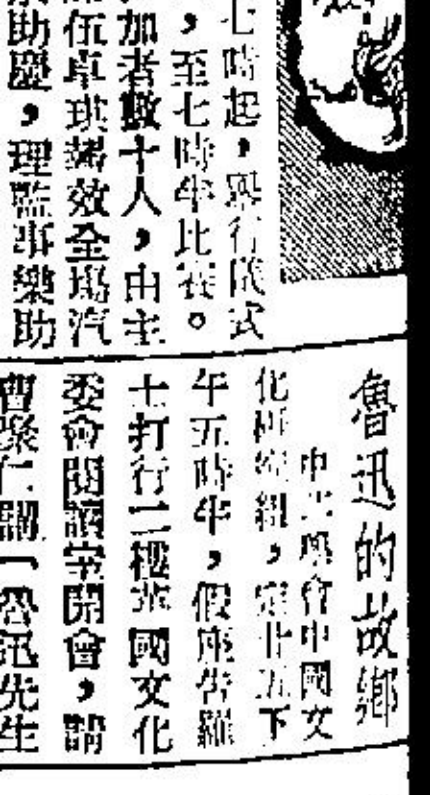 七時起，舉行儀式
，至七時半比賽。
加者數十人，由主
伍卓琪報效全場汽
助慶，理監事樂助
魯迅的故鄉
中英學會中國文
化研究組，定廿五下
午五時半，假座告羅
士打行二樓英國文化
委會閱讀室開會，請
曹聚仁講「魯迅先生